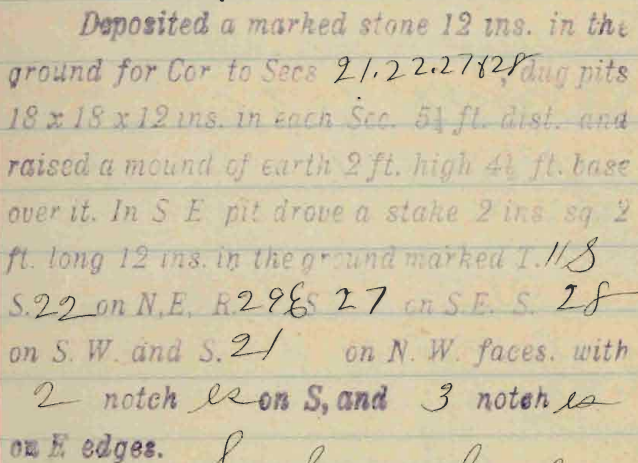 Deposited a marked stone 12 ins. in the
ground for Cor to Secs 21.22.27&28, dug pits
18 x 18 x 12 ins. in each Sec. 5½ ft. dist. and
raised a mound of earth 2 ft. high 4½ ft. base
over it. In S E pit drove a stake 2 ins sq. 2
ft. long 12 ins. in the ground marked T.11S
S.22 on N.E. R.29E S 27 on S.E. S. 28
on S. W. and S.21 on N. W. faces. with
2 notch es on S, and 3 notch es
on E edges.